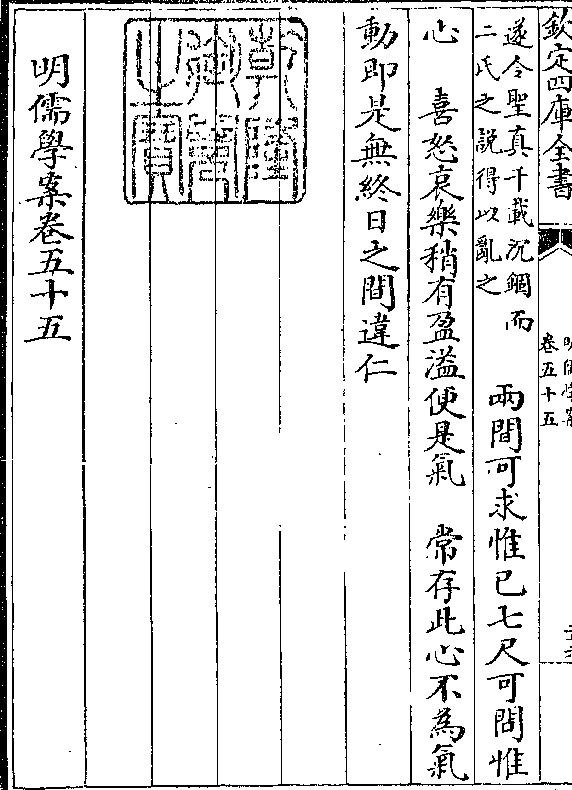 欽定四庫全書
卷五十五
遂令聖真千載沉錮而
二氏之說得以亂之
兩間可求惟已七尺可問惟
心　喜怒哀樂稍有盈溢便是氣　常存此心不為氣
動即是無終日之間違仁
乾隆御覽之寶
明儒學案卷五十五